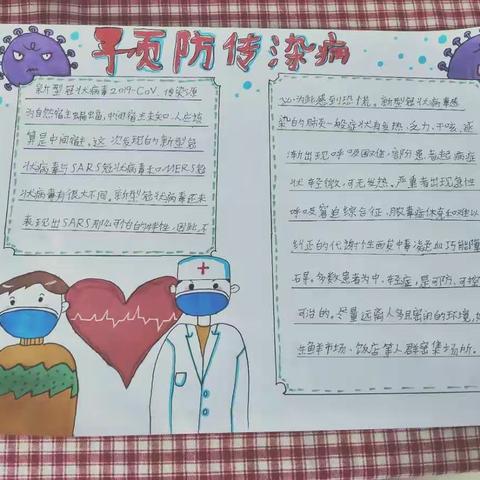 预防传染病
新型冠状病毒2019-CoV.传染源
为自然宿主蝙蝠,中间宿主未知,人应该
算是中间宿主。这次发现的新型冠
状病毒与SARS冠状病毒和MERS冠
状病毒有很大不同。新型冠状病毒还未
表现出SARS那么可怕的毒性,因此,不
必为此感到恐慌。新型冠状病毒感
染的肺炎一般症状有发热、乏力、干咳、逐
渐出现呼吸困难,部分患者起病症
状轻微,可无发热。严重者出现急性
呼吸窘迫综合征、脓毒症休克和难以
纠正的代谢性酸中毒
多数患者为中、轻症,是可防、可控
可治的。尽量远离人多且密闭的环境,如
生鲜市场、饭店等人群密集场所。